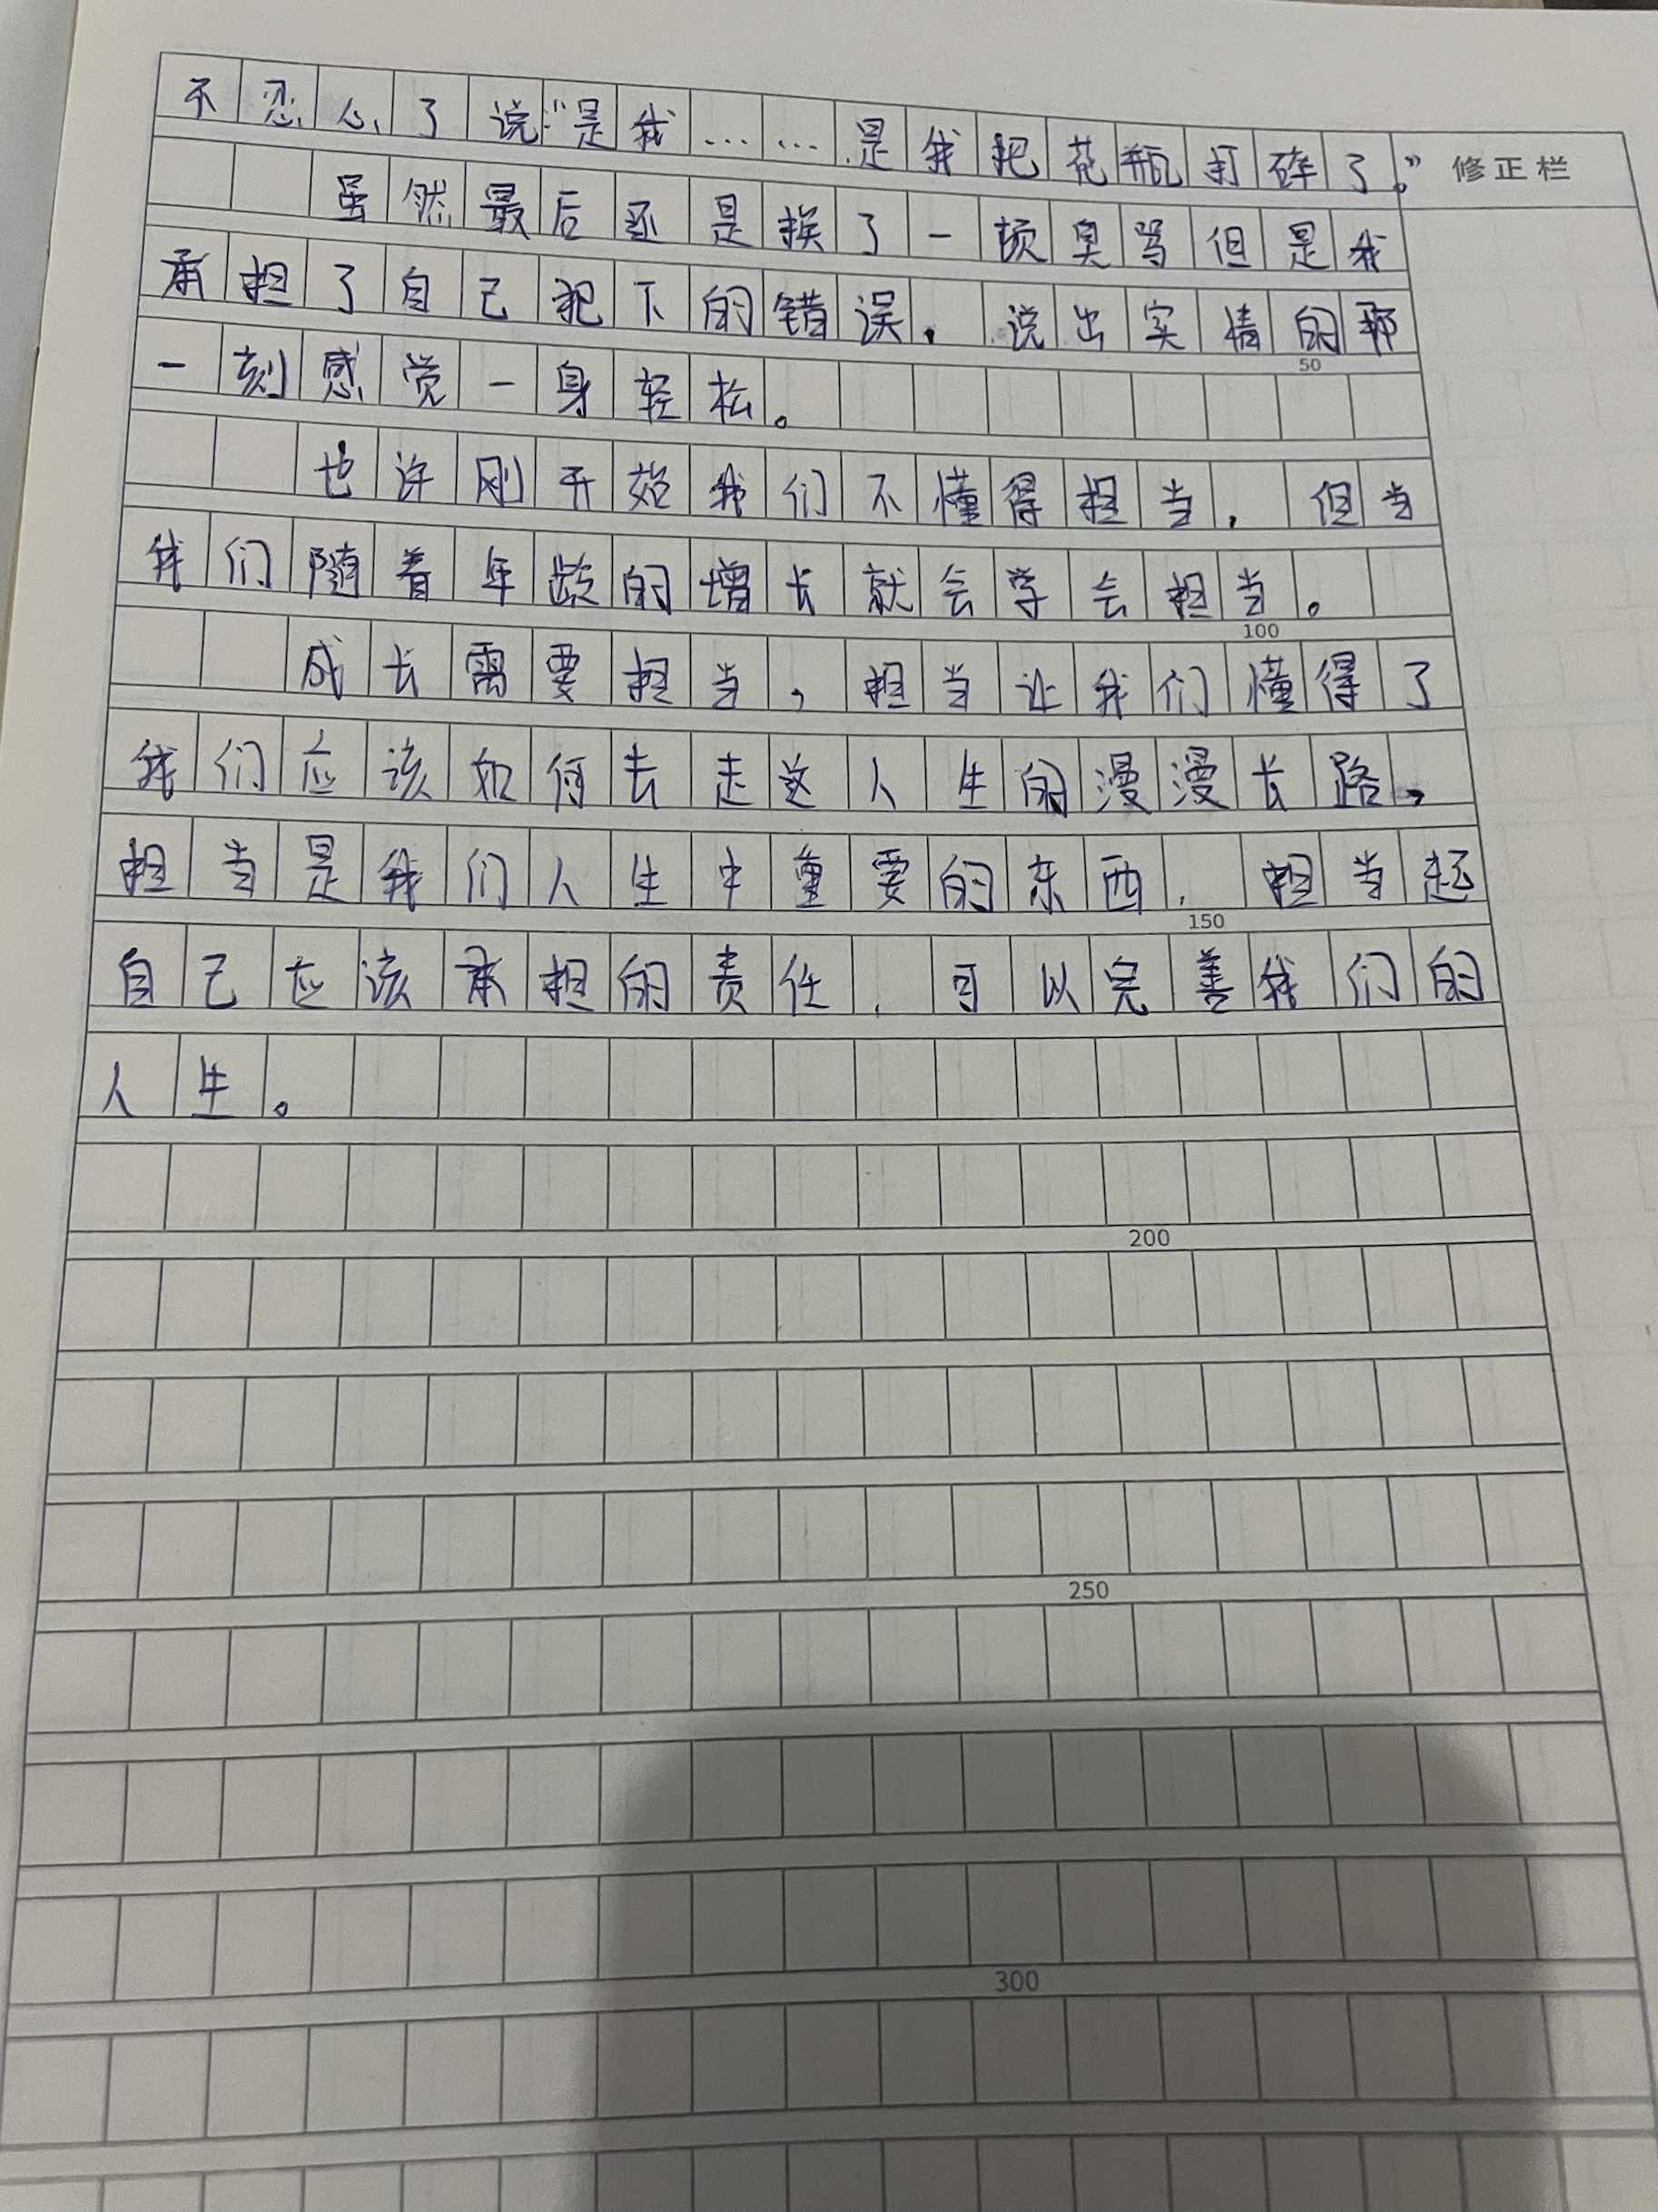 不忍心了说:“是我……是我把花瓶打碎了。”
修正栏
虽然最后还是挨了一顿臭骂但是我
承担了自己犯下的错误，说出实情的那
50
一刻感觉一身轻松。
也许刚开始我们不懂得担当，但当
我们随着年龄的增长就会学会担当。
100
成长需要担当，担当让我们懂得了
我们应该如何去走这人生的漫漫长路，
担当是我们人生中重要的东西，担当起
150
自己应该承担的责任，可以完善我们的
人生。
200
250
300